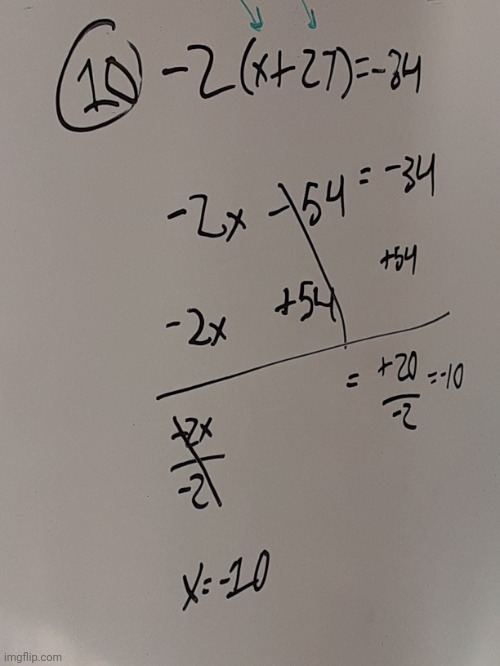 10 -2(x+27)=-34
-2x -54 = -34
+54
-2x +54
= +20/-2 = -10
-2x/-2
x=-10
imgflip.com